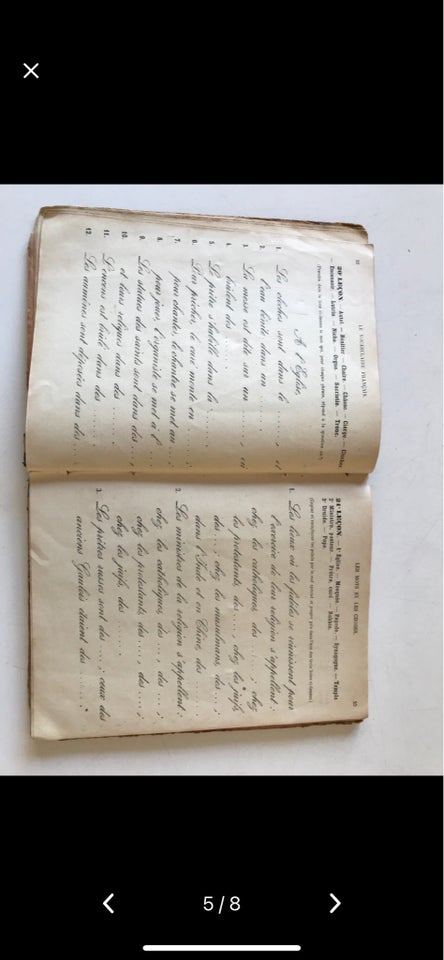 22
LE VOCABULAIRE FRANÇAIS.
20e LEÇON. — Autel — Bénitier — Chaire — Châsse — Cierge — Clocher
— Encensoir — Lutrin — Niche — Orgue — Sacristie — Tronc.
A l'Église.
1. Les cloches sont dans le ......, et
2. l'eau bénite dans un ......
3. La messe est dite sur un ......, où
4. brûlent des ......
5. Le prêtre s'habille dans la ......
6. Pour prêcher, le curé monte en ......;
7. pour chanter, le chantre se met au ......;
8. pour jouer, l'organiste se met à l'......
9. Les statues des saints sont dans des ......,
10. et leurs reliques dans des ......
11. L'encens est brûlé dans des ......
12. Les aumônes sont déposées dans des ......
LES MOTS ET LES CHOSES.
23
21e LEÇON. — 1° Église — Mosquée — Pagode — Synagogue — Temple
2° Ministre, pasteur — Prêtre, curé — Rabbin.
3° Druide — Pope.
1. Les lieux où les fidèles se réunissent pour
l'exercice de leur religion s'appellent :
chez les catholiques des ......; chez
les protestants, des ......, chez les juifs,
des ......; chez les musulmans, des ......;
dans l'Inde et en Chine, des ......
2. Les ministres de la religion s'appellent :
chez les catholiques, des ......, des ......;
chez les protestants, des ......, des ......;
chez les juifs, des ......
3. Les prêtres russes sont des ......; ceux des
anciens Gaulois étaient des ......
5/8